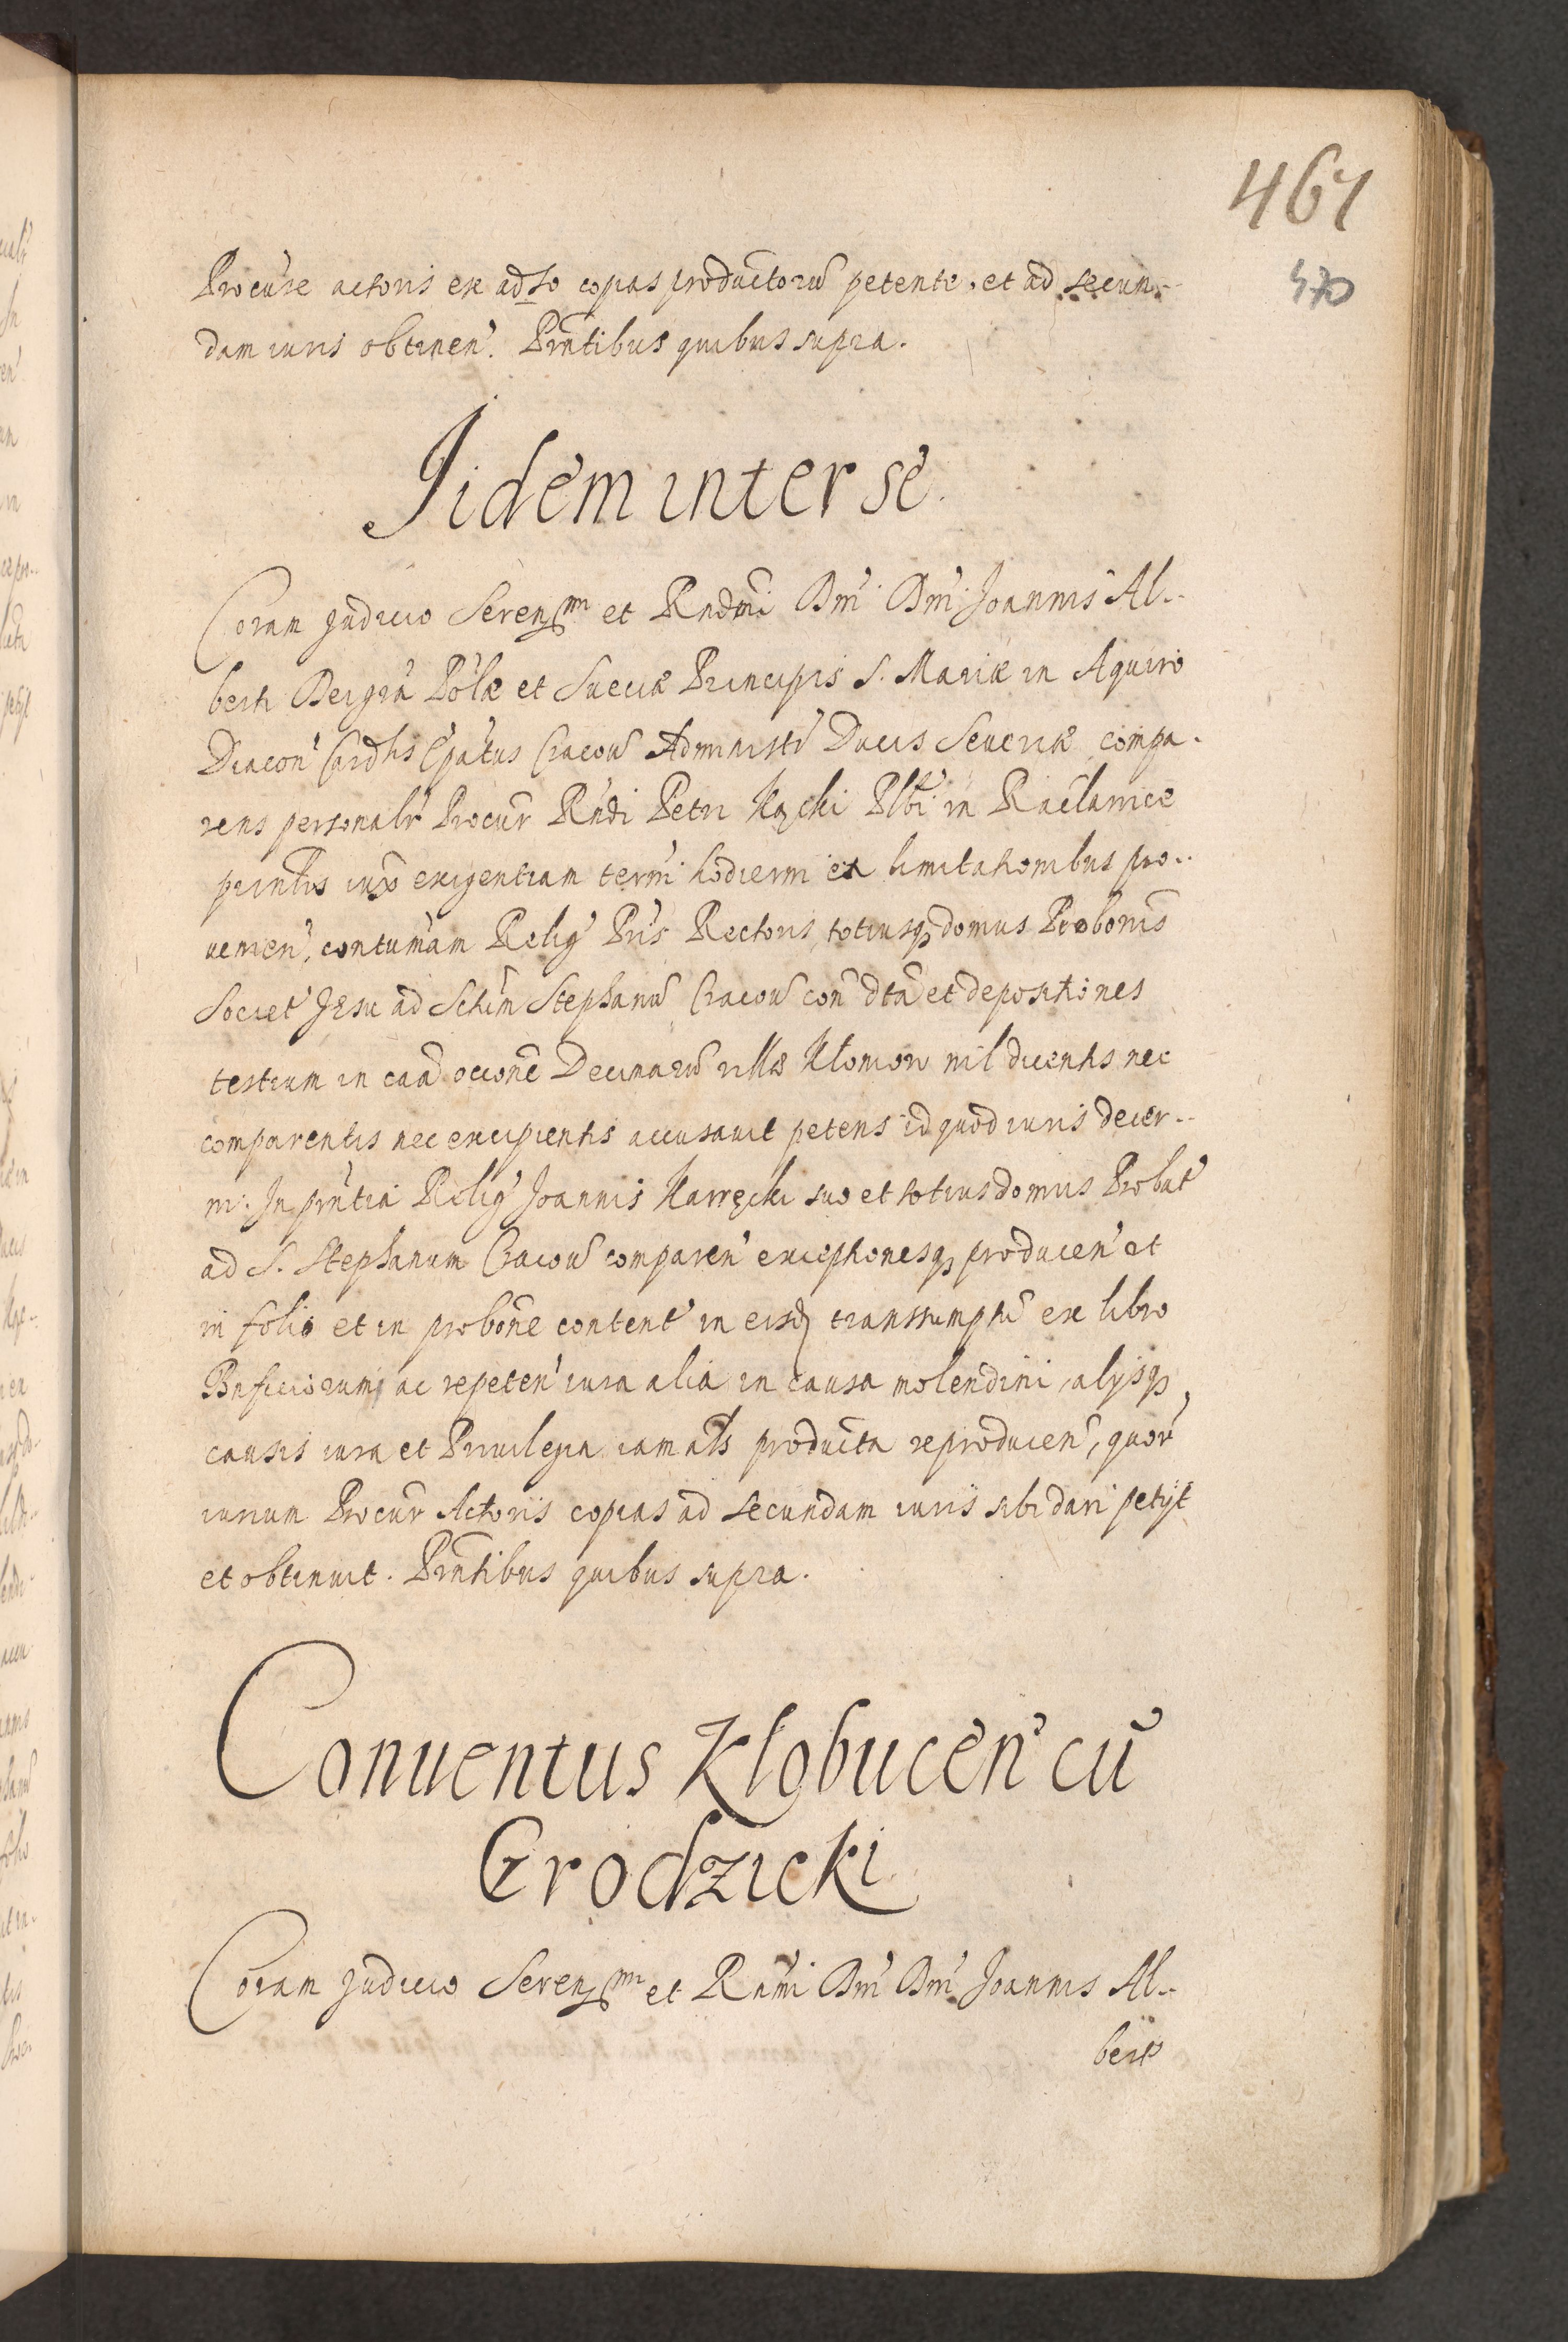 461
470
Procu're actoris ex ad.so copias productorũ petente, et ad secun-
dam iuris obtinen'. Pr̃ntibus quibus supra.
Jidem inter se.
Coram Judicio Serenss^mi et Rndmi Dni' Dni' Joannis Al-
berti Dei gr̃a Pol'æ et Sueciæ Principis S. Mariæ in Aquiro
Diacon' Cardlis Ep'atus Cracou' Administr' Ducis Seueriæ compa-
rens personalr' Procur' Rndi Petri Kącki Plbi' in Raclawice
prinlis iux̃ exigentiam term'i hodierni ex limitationibus pro-
uenien', contum̃am Relig' Pr̃is Rectoris, totiusq₃ domus Probonis̃
Societ' Jesu ad Sctũm Stephanũ Cracou' con' dta et depositiones
testium in caã ōcione Decimarũ uillæ Klonow nil dicentis nec
comparentis nec excipientis accusauit petens id quod iuris decer-
ni. In prñtia Relig' Joannis Karręcki suo et totius domus Probat'
ad S. Stephanum Cracou' comparen' exceptionesq₃ producen' et
in folio et in probõne content' in eisd₃ transsumptũ ex libro
Bnficiorum, ac repeten' iura alia in causa molendini, alijsq₃,
causis iura et Priuilegia iam als̃ producta reproducen', quor'
iurium Procur' Actoris copias ad secundam iuris sibi dari petijt
et obtinuit. Pr̃ntibus quibus supra.
Conuentus Klobucen' cũ
Grodzicki
Coram Judicio Serenss^mi et Rnmi Dni' Dni' Joannis Al-
berti